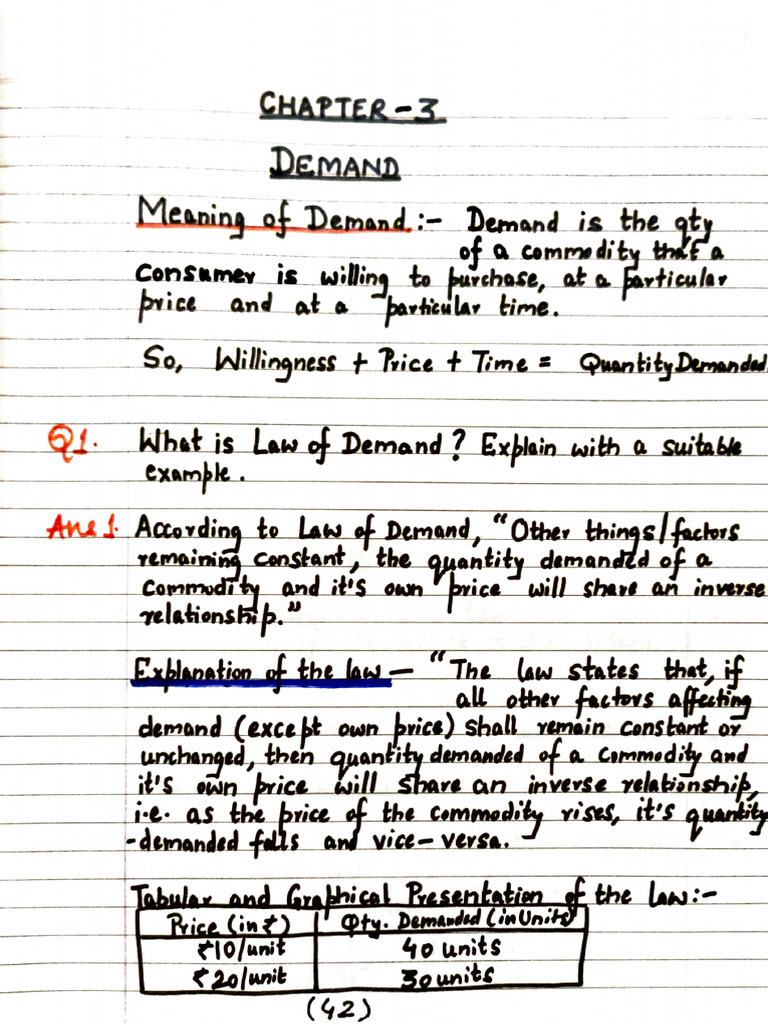 CHAPTER-3
DEMAND
Meaning of Demand:- Demand is the qty
of a commodity that a
consumer is willing to purchase, at a particular
price and at a particular time.
So, Willingness + Price + Time = Quantity Demanded.
Q1. What is Law of Demand? Explain with a suitable
example.
Ans 1. According to Law of Demand, "Other things/factors
remaining constant, the quantity demanded of a
commodity and it's own price will share an inverse
relationship."
Explanation of the law - "The law states that, if
all other factors affecting
demand (except own price) shall remain constant or
unchanged, then quantity demanded of a commodity and
it's own price will share an inverse relationship,
i.e. as the price of the commodity rises, it's quantity
-demanded falls and vice-versa.
Tabular and Graphical Presentation of the law:-
Price (in ₹) Qty. Demanded (in Units)
₹10/unit 40 units
₹20/unit 30 units
(42)